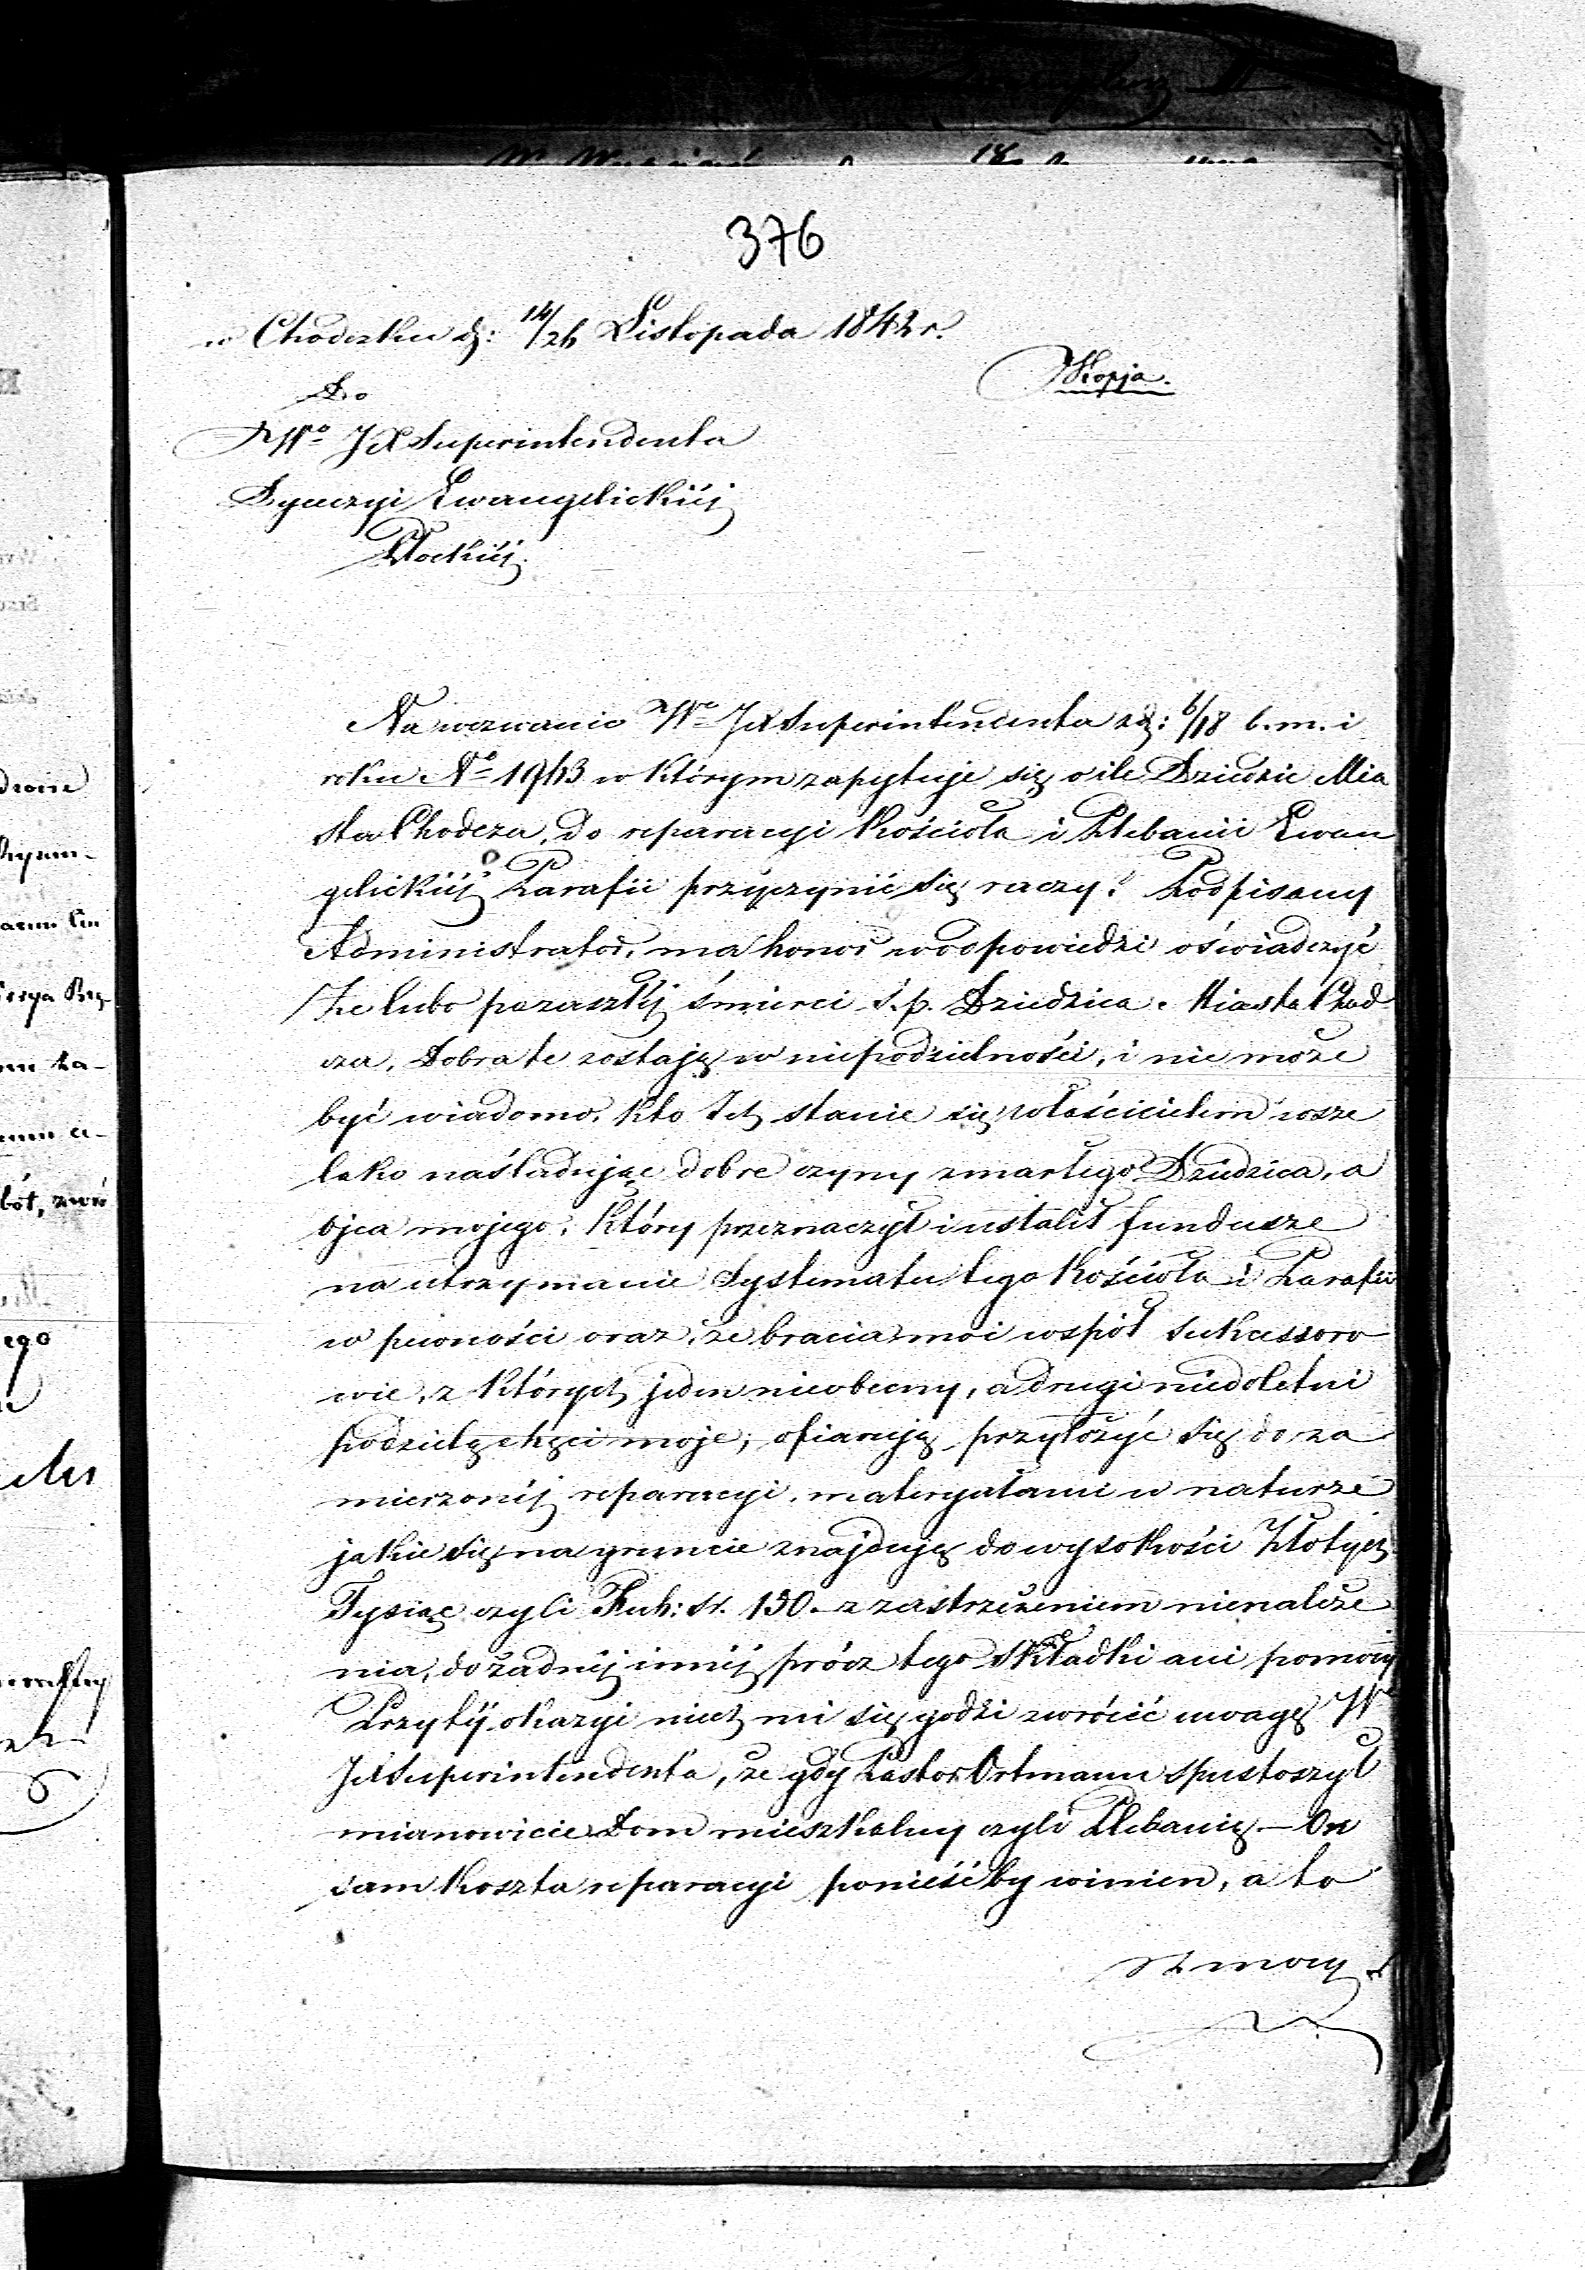 376
w Chodeczku d: 14/26 Listopada 1842 r.
Kopja.
Do
Wo JX Superintendenta
Dyecezyi Ewangelickiéj
Płockiéj.
Na wezwanie Wo JX Superintendenta z d: 6/18 b. m. i
roku No 1963 w którym zapytuje się o ile Dziedzic Mia
sta Chodcza, do reparacyi Kościoła i Plebanii Ewan
gelickiéj Parafii przyczynić się raczy? Podpisany
Administrator, ma honor w odpowiedzi oświadczyć
Że lubo po zaszłéj śmierci ś. p. Dziedzica Miasta Chod
cza, Dobra te zostają w niepodzielności, i nie może
być wiadomo, kto Ich stanie się właścicielem wsze
lako naśladując dobre czyny zmarłego Dziedzica, a
ojca mojego, który przeznaczył i ustalił fundusze
na utrzymanie Systematu tego Kościoła i Parafii
w pewności oraz, że bracia moi współ Sukcessoro
wie, z których jeden nieobecny, a drugi niedoletni
podzielą chęci moje, ofiaruję przyłożyć się do za
mierzonéj reparacyi, materyałami w naturze
jakie się na gruncie znajdują do wysokości Złotych
Tysiąc czyli Rub: sr. 150. z zastrzeżeniem nienależe
nia, do żadnéj innéj prócz tego Składki ani pomocy
Przytéj okazyi niech mi się godzi zwrócić uwagę Wo
JX Superintendenta, że gdy Pastor Ortmann spustoszył
mianowicie Dom mieszkalny czyli Plebanię — On
sam koszta reparacyi ponieść by winien, a to
z mocy